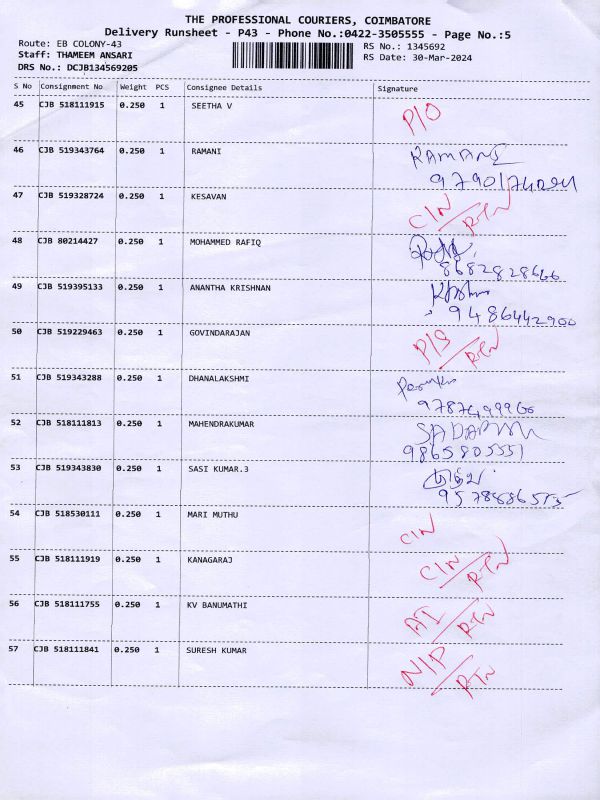 THE PROFESSIONAL COURIERS, COIMBATORE
Delivery Runsheet - P43 - Phone No.:0422-3505555 - Page No.:5
Route: EB COLONY-43 RS No.: 1345692
Staff: THAMEEM ANSARI RS Date: 30-Mar-2024
DRS No.: DCJB134569205
S No Consignment No Weight PCS Consignee Details Signature
45 CJB 518111915 0.250 1 SEETHA V P/O
46 CJB 519343764 0.250 1 RAMANI RAMANI
47 CJB 519328724 0.250 1 KESAVAN C/N / RTN
48 CJB 80214427 0.250 1 MOHAMMED RAFIQ
8682828666
49 CJB 519395133 0.250 1 ANANTHA KRISHNAN
9486442900
50 CJB 519229463 0.250 1 GOVINDARAJAN P/S / RTN
51 CJB 519343288 0.250 1 DHANALAKSHMI
52 CJB 518111813 0.250 1 MAHENDRAKUMAR
9865805551
53 CJB 519343830 0.250 1 SASI KUMAR.3
54 CJB 518530111 0.250 1 MARI MUTHU C/N
55 CJB 518111919 0.250 1 KANAGARAJ C/N / RTN
56 CJB 518111755 0.250 1 KV BANUMATHI RTN
57 CJB 518111841 0.250 1 SURESH KUMAR N/P / RTN